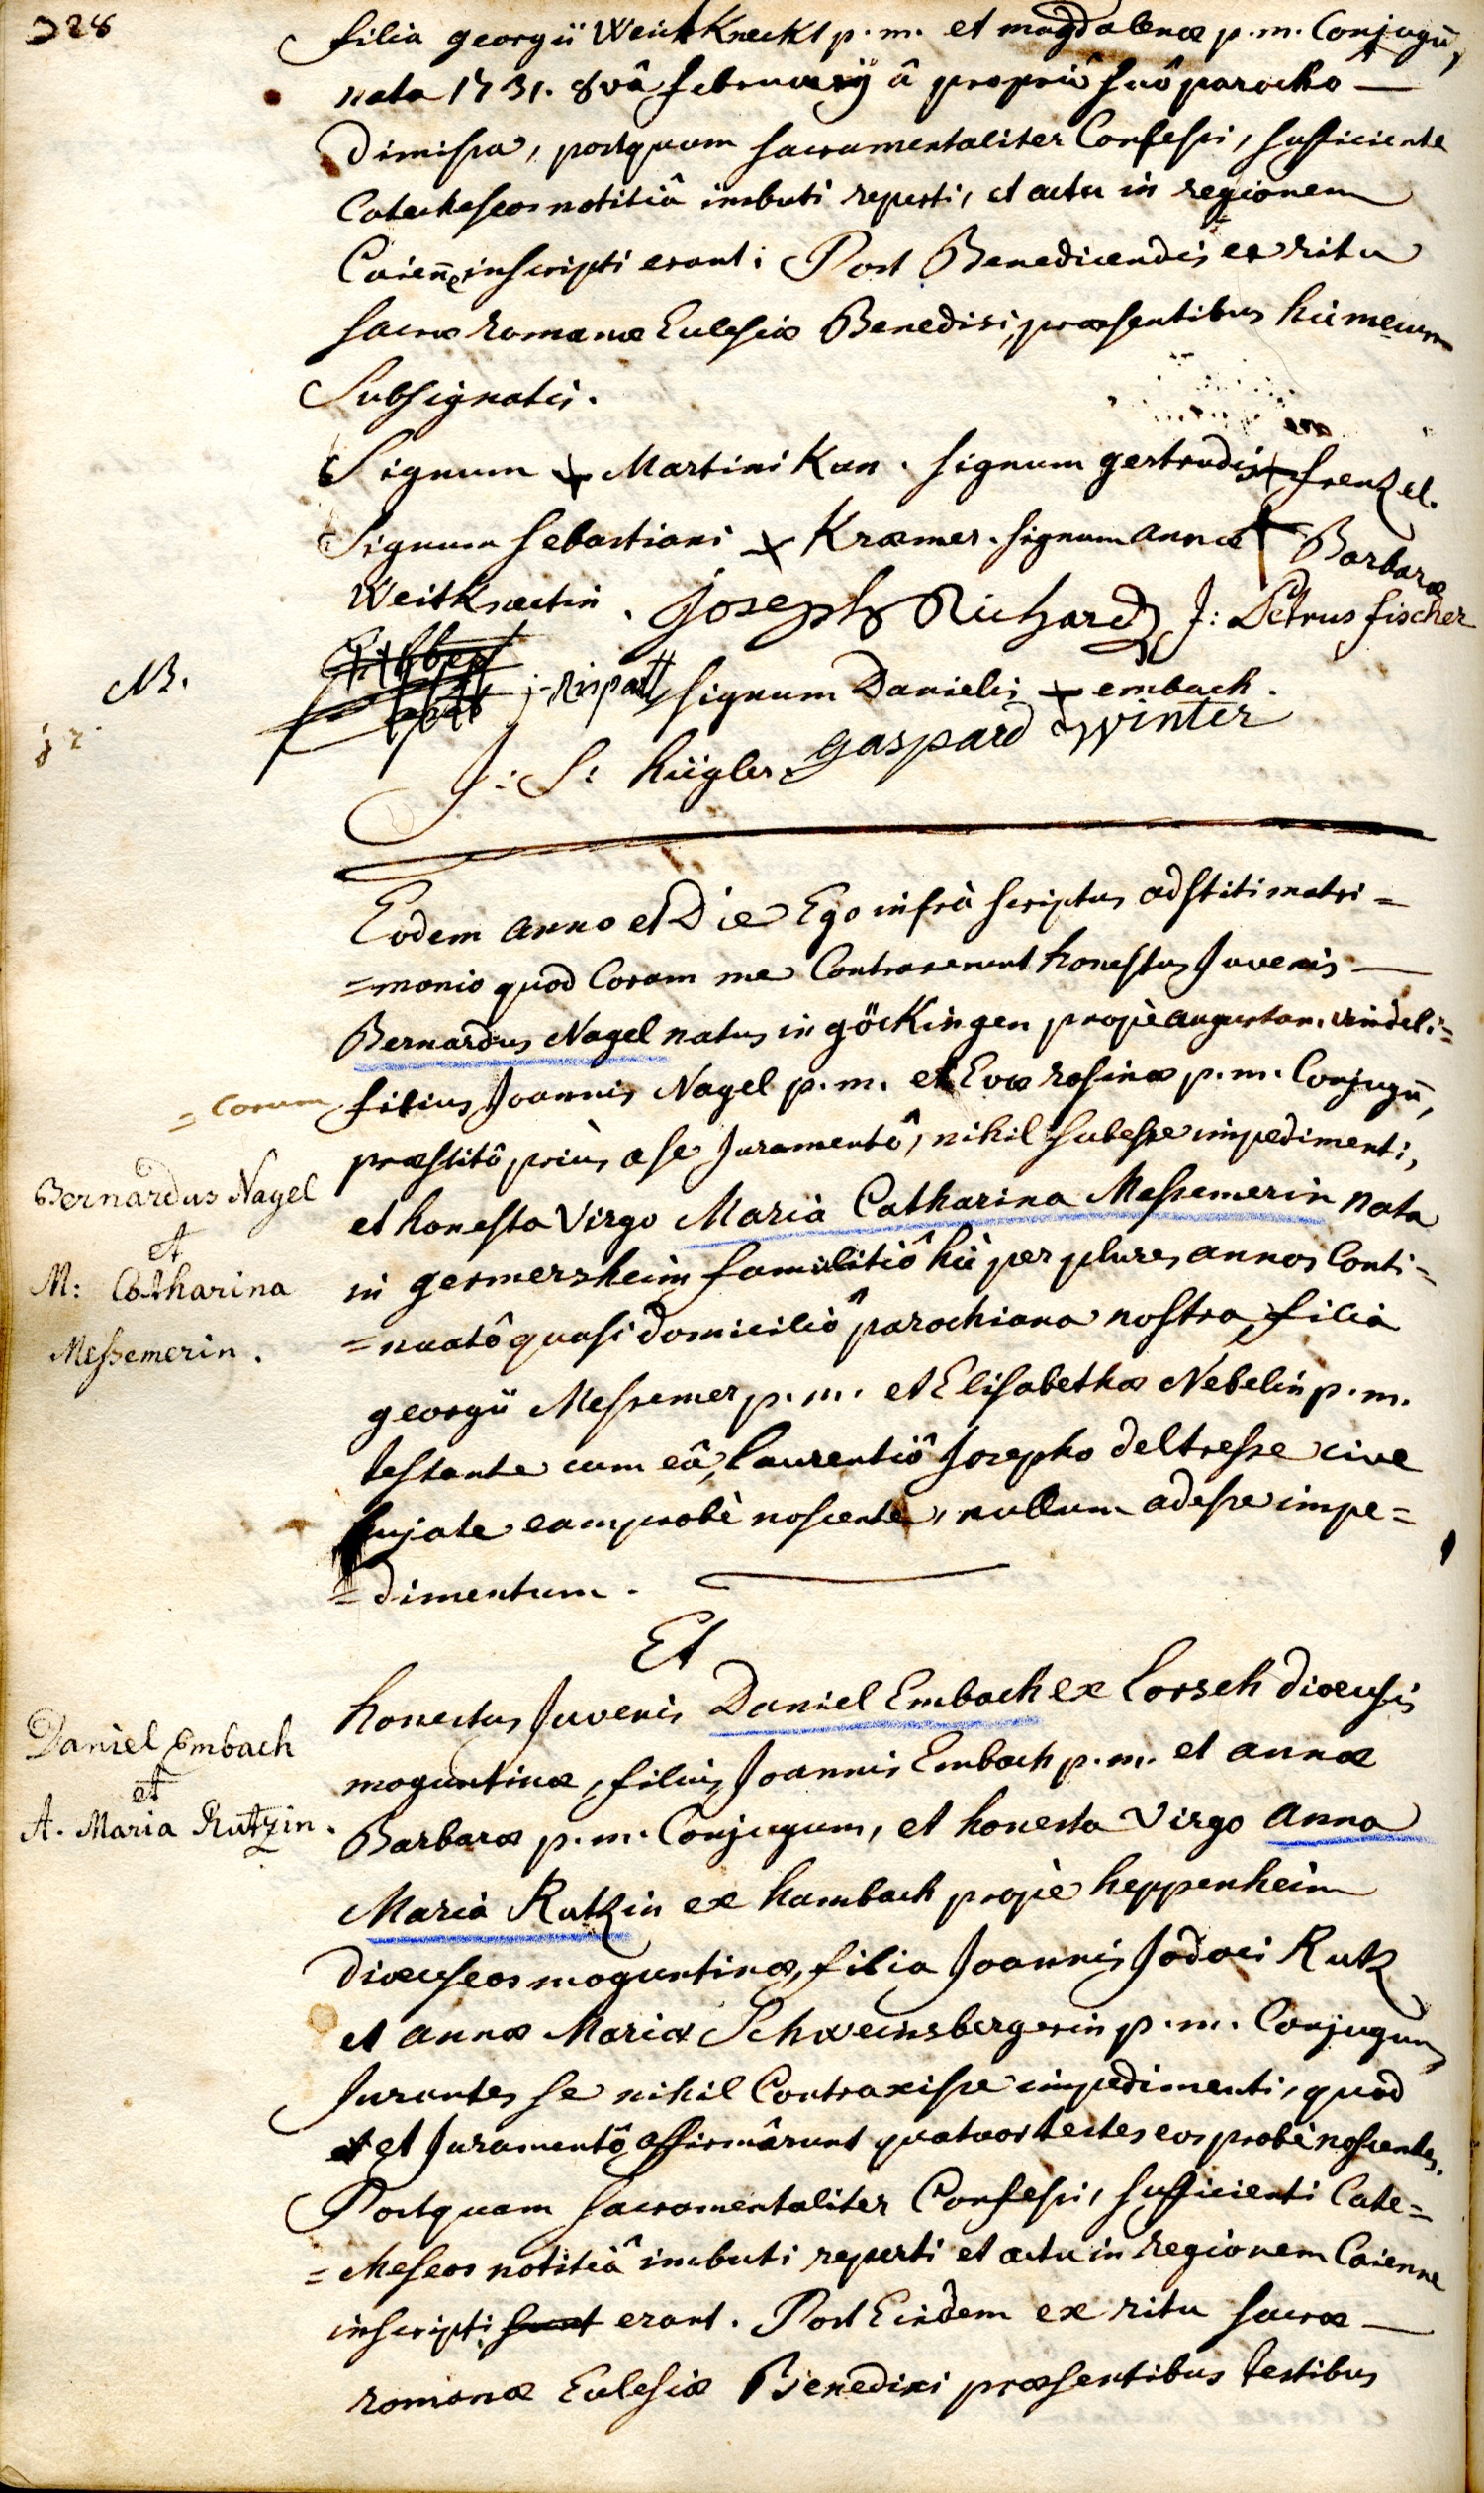 328
filia georgii WeitKnecht p. m. et magdalenæ p. m. Conjugū,
nata 1731. 8vâ february â propriô suô parocho —
Dimissa, postquam sacramentaliter Confessi, sufficiente
Catecheseos notitiâ imbuti reperti, et actu in regionem
Caienne inscripti erant; Post Benedicendis ex ritu
sacræ romanæ Ecclesiæ Benedixi, præsentibus hic mecum
Subsignatis.
Signum + Martini Kun. signum gertrudis + frenzel.
Signum sebastiani + Kræmer. signum annæ + Barbaræ
WeitKnectin. joseph Richard J: Petrus fischer
NB. signum Danielis + embach.
J: S: hügler. gaspard winter
Eodem anno et Die Ego infrà scriptus adstiti matri=
=monio quod Coram me Contraxerunt honestus Juvenis —
Bernardus Nagel natus in göcKingen propè augustam vindeli=
= corum filius Joannis Nagel p. m. et Evæ rosinæ p. m. Conjugū,
præstitô priùs a se Juramentô, nihil subesse impedimenti,
Bernardus Nagel
et
M: Catharina
Messemerin.
et honesta Virgo Maria Catharina Messemerin nata
in germersheim famulitiô hic per plures annos Conti=
=nuatô quasi domiciliô parochiana nostra, filia
georgii Messemer p. m. et Elisabethæ Nebelin p. m.
testante cum eâ, Laurentiô Josepho deltresse cive
hujate eam probè noscente, nullum adesse impe=
=dimentum.
Et
Daniel Embach
et
A. Maria Rutzin.
honestus Juvenis Daniel Embach ex Lorsch diœcesis
moguntinæ, filius Joannis Embach p. m. et annæ
Barbaræ p. m. Conjugum, et honesta Virgo anna
Maria Rutzin ex hambach propè heppenheim
diœceseos moguntinæ, filia Joannis Jodoci Rutz
et annæ Mariæ Schweinsbergerin p. m. Conjugum
Jurantes se nihil Contraxisse impedimenti, quod
et Juramentô affirmârunt quatuor testes eos probè noscentes.
Postquam sacramentaliter Confessi, sufficienti Cate=
=cheseos notitiâ imbuti reperti et actu in regionem Caienne
inscripti sunt erant. Post Eisdem ex ritu sacræ —
romanæ Ecclesiæ Benedixi præsentibus testibus